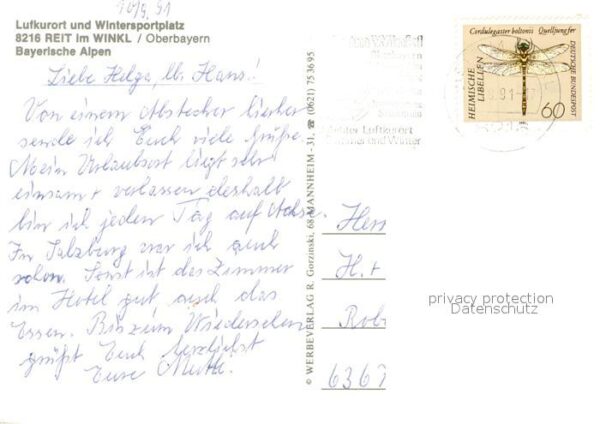 10/9. 91
Luftkurort und Wintersportplatz
8216 REIT im WINKL / Oberbayern
Bayerische Alpen
Liebe Helga, lb. Hans!
Von einem Abstecher hierher
sende ich Euch viele Grüße.
Mein Urlaubsort liegt sehr
einsam + verlassen deshalb
bin ich jeden Tag auf Achse.
In Salzburg war ich auch
schon. Sonst ist das Zimmer
im Hotel gut auch das
Essen. Bis zum Wiedersehen
grüßt Euch herzlichst
Eure
© WERBEVERLAG R. Gorzinski, 68 MANNHEIM - 31, ☎ (0621) 75 36 95
Cordulegaster boltonii Quelljungfer
HEIMISCHE
LIBELLEN
DEUTSCHE BUNDESPOST
60
Luftkurort
und Winter
H. +
6367
privacy protection
Datenschutz